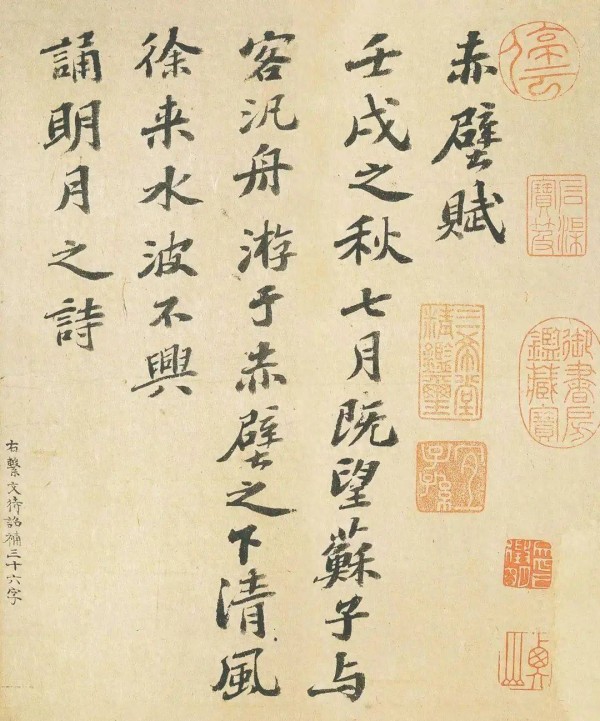 御書房鑑藏寶
赤壁賦
三希堂精鑑璽
宜子孫
壬戌之秋七月既望蘇子与
客汎舟游于赤壁之下清風
徐来水波不興
誦明月之詩
右繫文待詔補三十六字